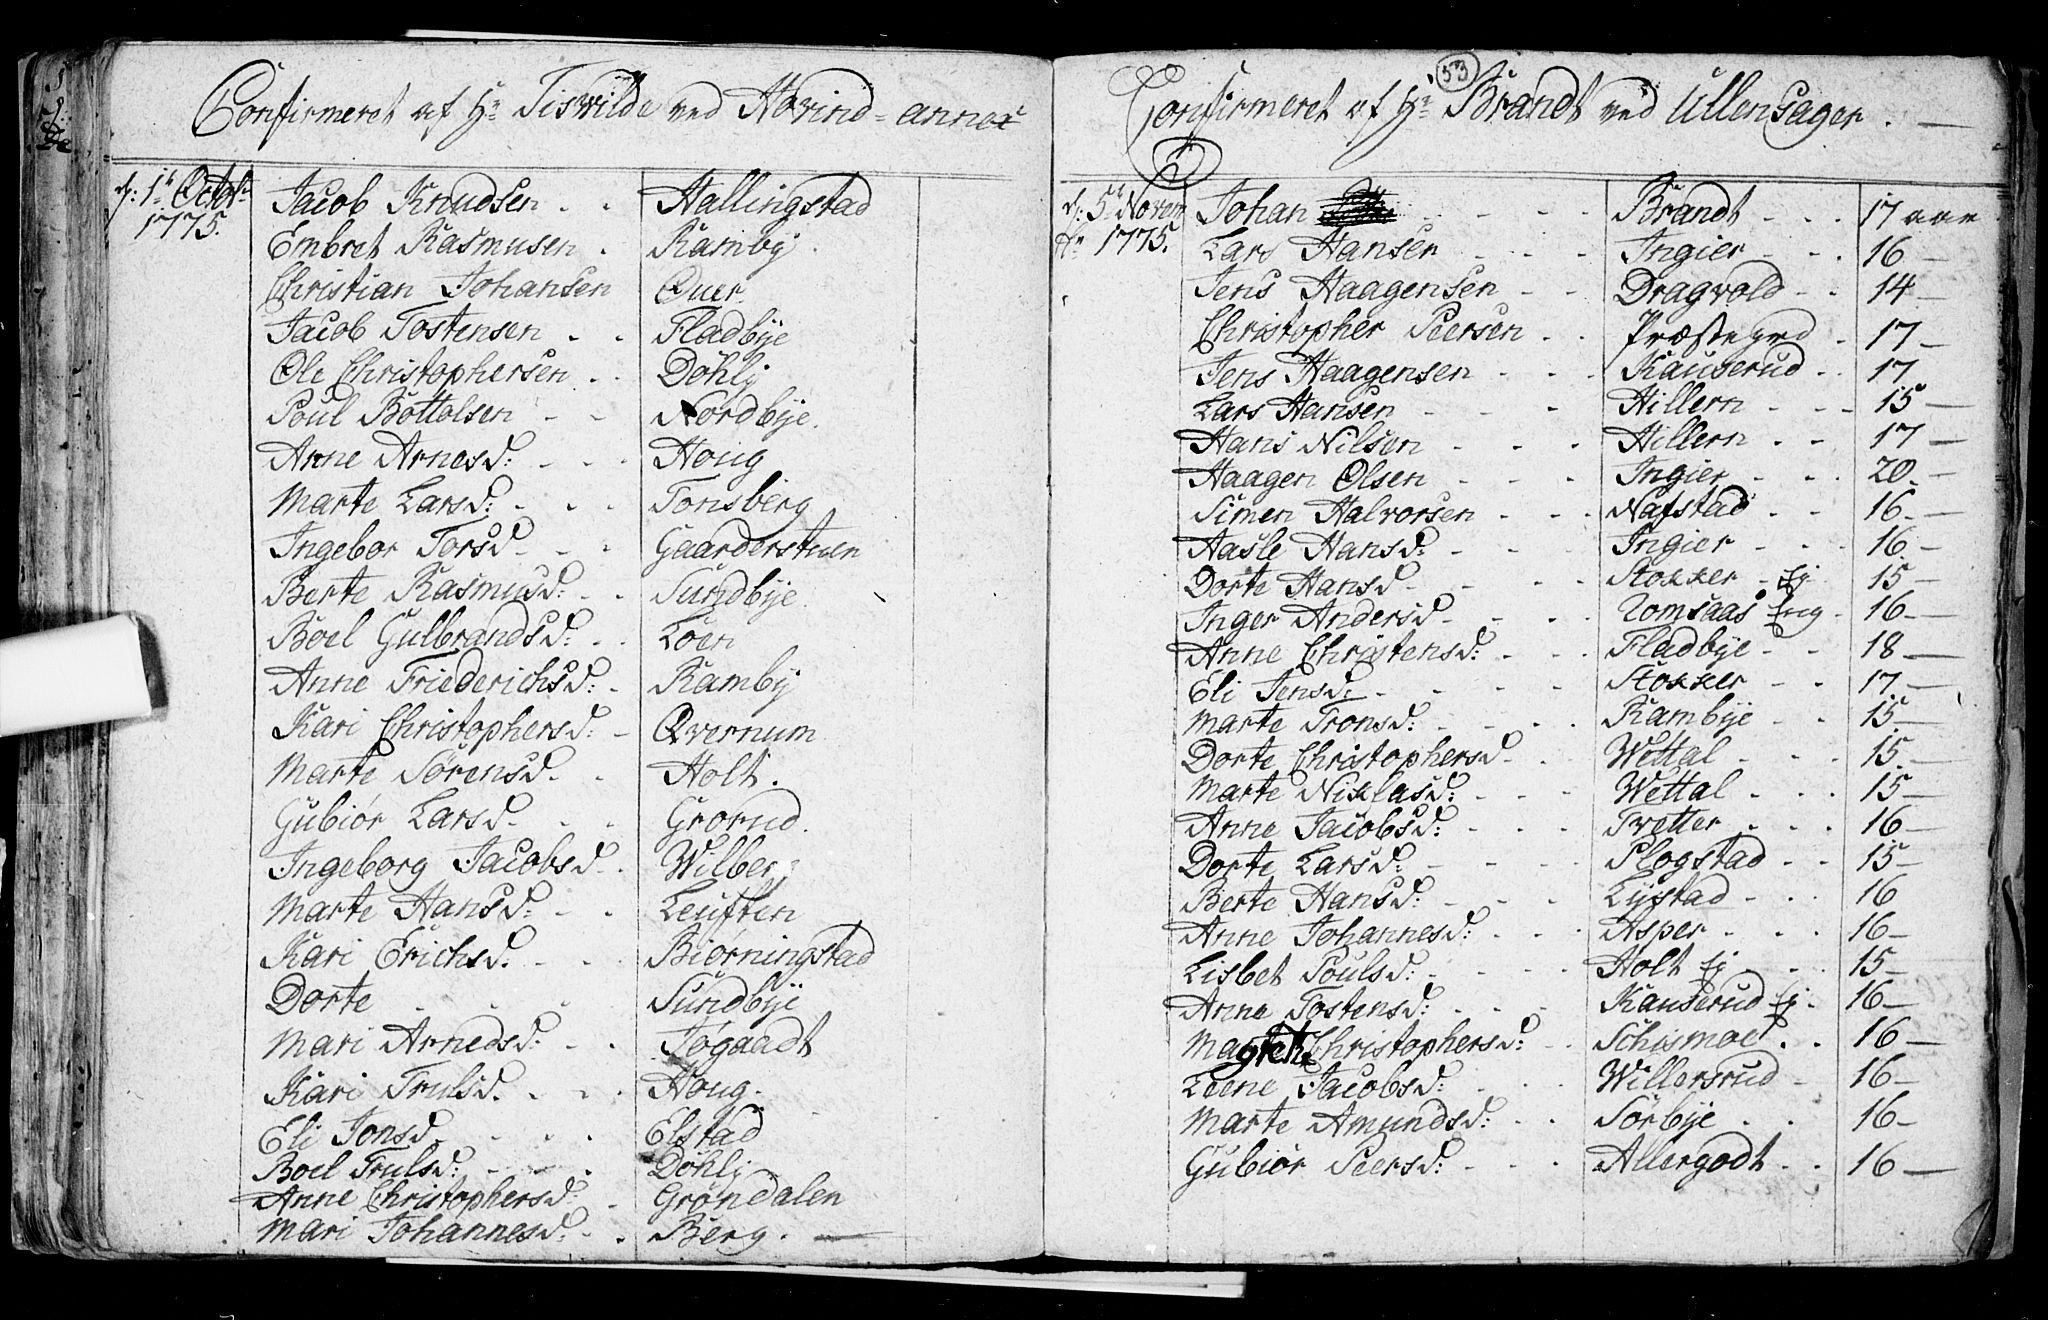 Confirmeret af Hr Tisvilde ved Hovind=annex
d: 1te Octobr 1775. Jacob Knudsen . . Hallingstad
Embret Rasmusen . Ramby
Christian Johansen Quer
Jacob Tostensen . . Fladbye
Ole Christophersen . . Döhly
Poul Bottolsen - - Nordbye.
Anne Arnesd: - - - Houg
Marte Larsd: . . . Tonsberg
Ingebor Torsd - - - Gaarderstuen
Berte Rasmusd: - - Sundbye
Boel Gulbrandsd: - - Loen
Anne Friederichsd: - Ramby
Kari Christophersd: - Qvernum
Marte Sörensd. - Holt.
Gubiør Larsd - - - Grorud.
Ingeborg Jacobsd - . Wilber
Marte Hansd: - . Leuften
Kari Erichsd: - - - Biørningstad
Dorte - - - Sundbye
Mari Arnedsd: - - Jøgaadt
Kari Trulsd. . - . Houg.
Eli Jonsd - - - - Elstad
Boel Trulsd: - - . Döhly
Anne Christophersd: - Gröndalen
Mari Johannesd: - . Berg. —
53
Confirmeret af Hr Brandt ved Ullensager. —
d: 5te Novembr 1775. Johan - - - - Brandt - - - 17 aar
Lars Hansen - - - Ingier - - . 16 —
Jens Haagensen - - Dragvold - - 14 —
Christopher Peersen . . Præstegrd . 17 —
Jens Haagensen - - - Kauserud - - 17
Lars Hansen - - - Hillern - - - 15 —
Hans Nilsen - - - Hillern - - 17 —
Haagen Olsen - - - Ingier - - - 20. —
Simen Halvorsen - - - Nafstad - - 16. —
Aasle Hansd: - - - Ingier - - - 16. —
Dorte Hansd - - - Stokker - Ej 15 —
Inger Andersd - - - Romsaas Eng - 16. —
Anne Christensd: - - - Fladbye - - 18 —
Eli Jensd: - - - - Stokker - - 17. —
Marte Tronsd: - - - . Rambye - - 15. —
Dorte Christophersd - . . Wettal - - - 15. —
Marte Niklasd: - - - Wettal . . . 15 —
Anne Jacobsd: - - - Tvetter - - . 16 —
Dorte Larsd: - - - - Plogstad - - 15 —
Berte Hansd: - - - Lystad - . . 16
Anne Johannesd: - - - Asper - - - 16 —
Lisbet Poulsd: - - - - Holt Ej - . 15 —
Anne Tostensd: - - - Kauserud Ej - 16 —
Magrethe Christophersd: - - Schismoe . . 16 —
Leene Jacobsd: - - - Willersrud - 16 —
Marte Amundsd: - - Sörbye . . 16 —
Gubiör Peersd: - - - Allergodt - . 16 —